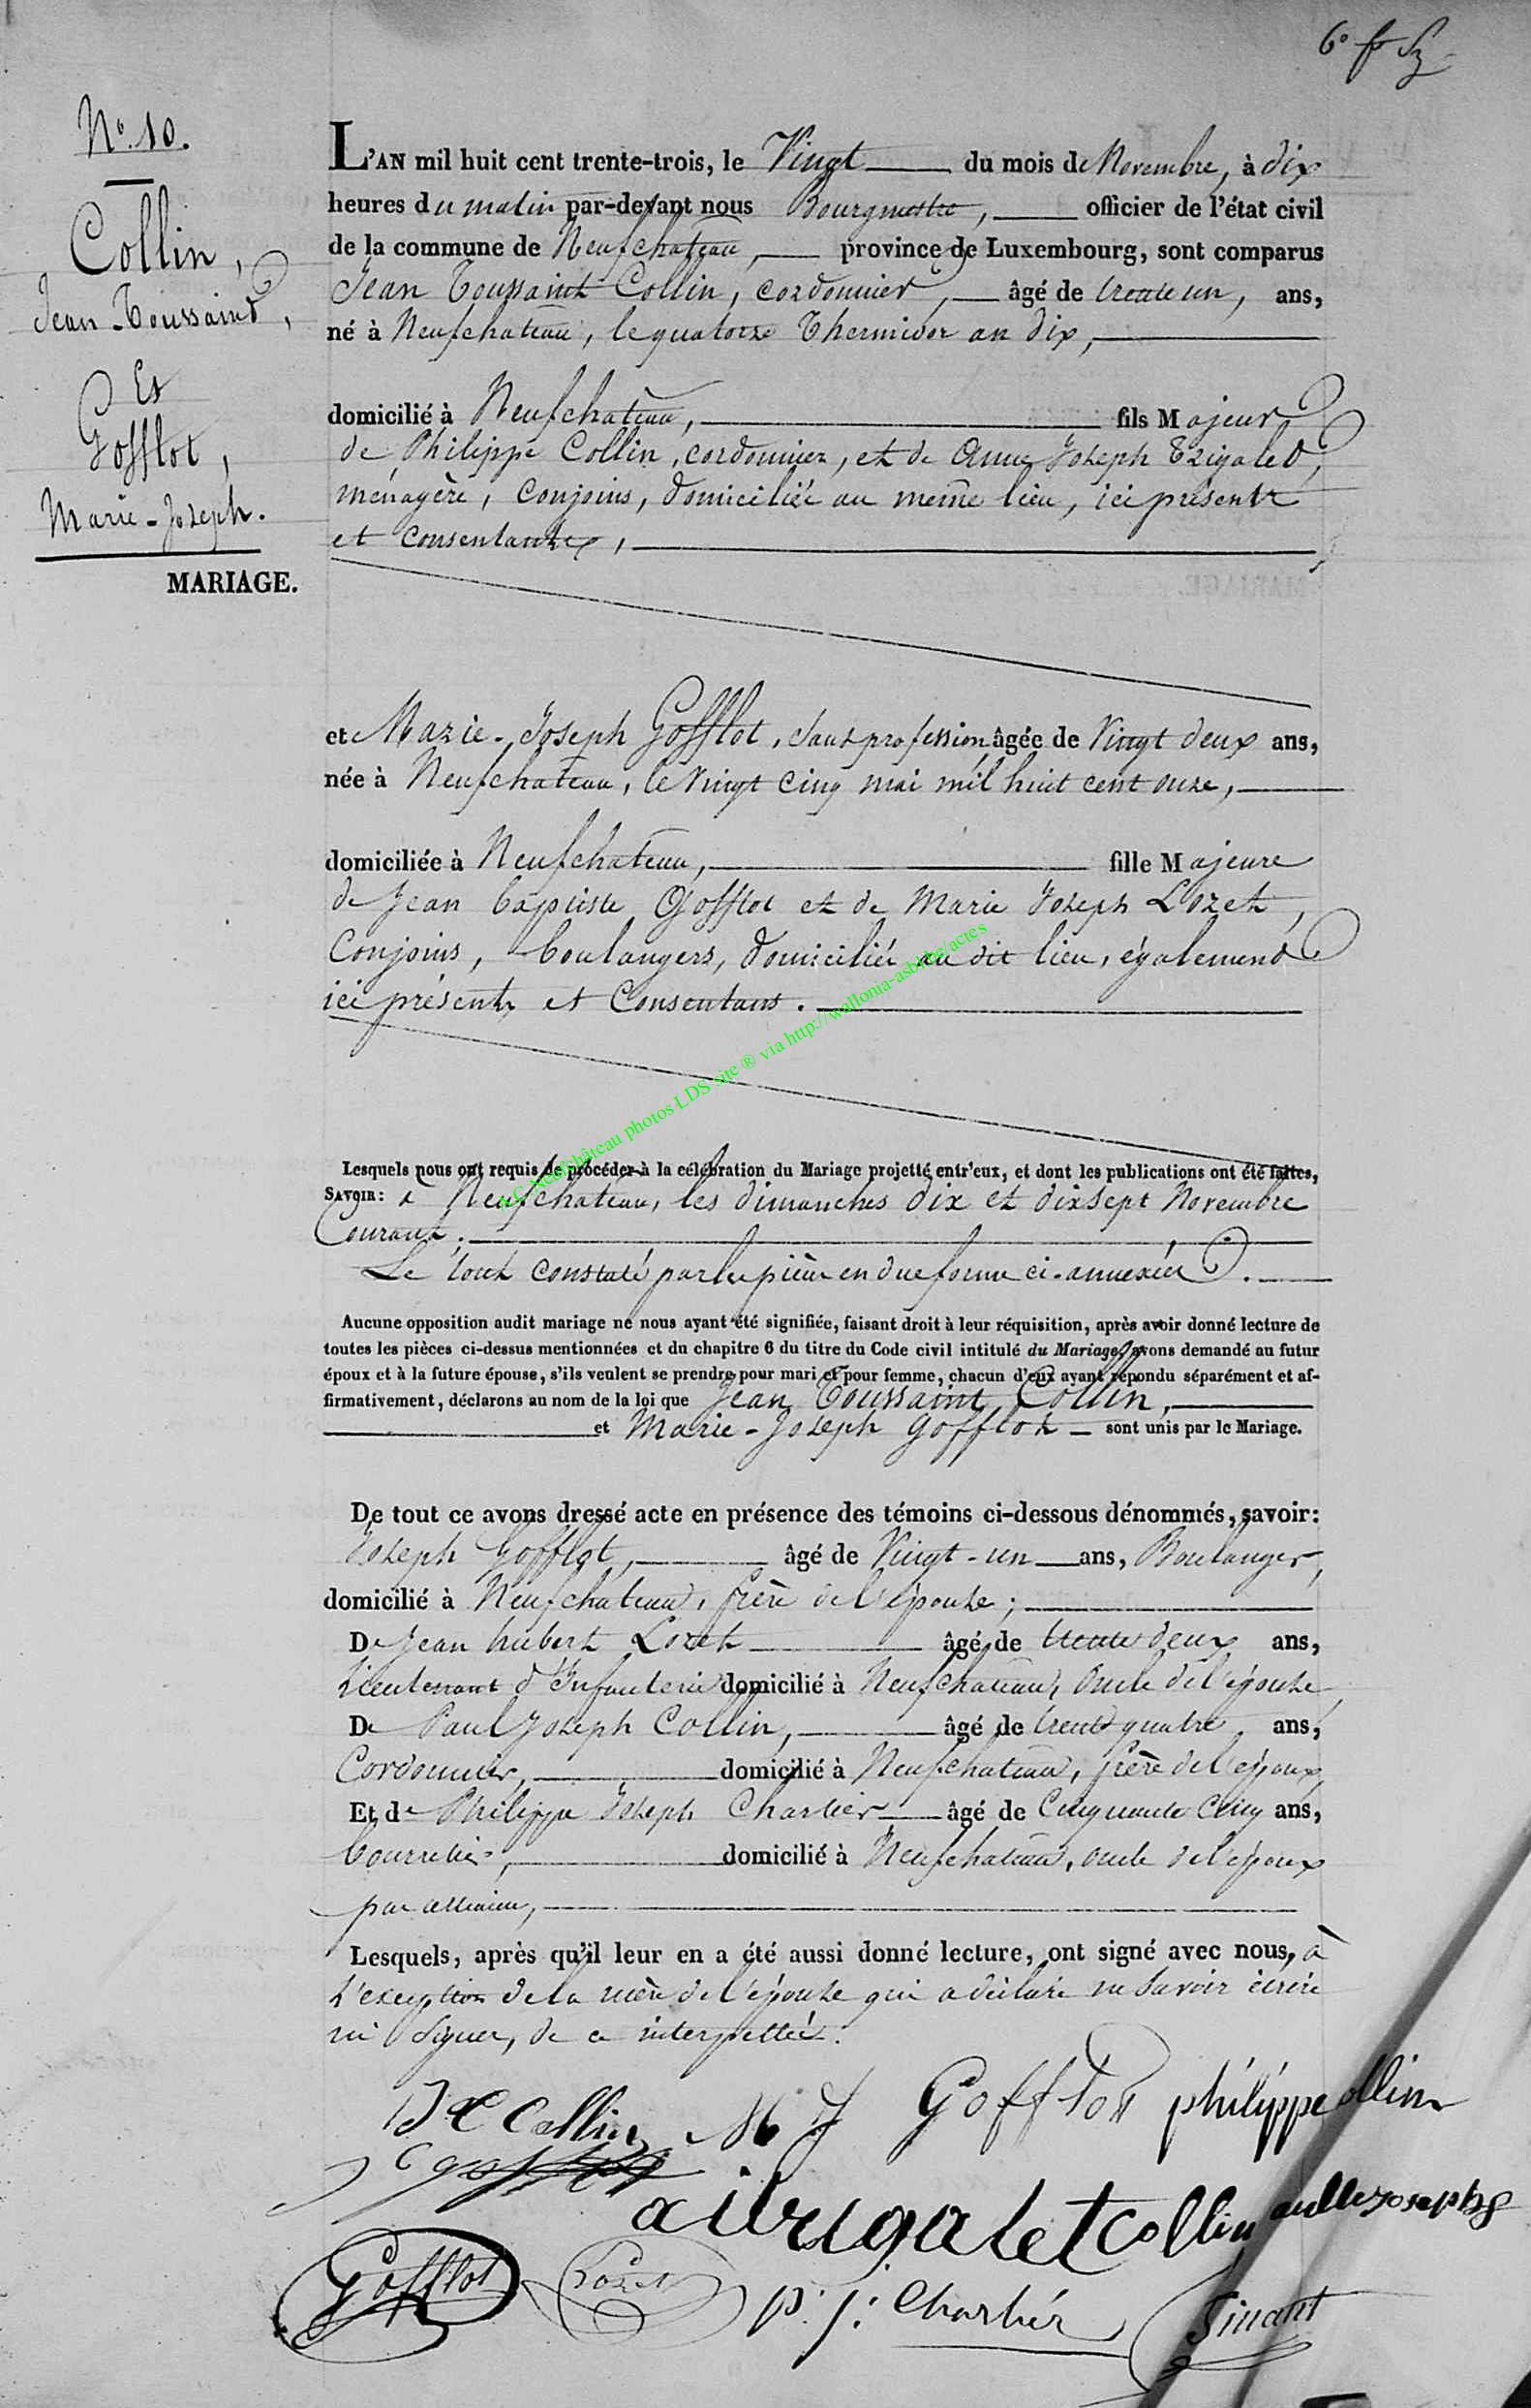 6e
No. 10.
Collin,
Jean-Toussaint,
Et
Gofflot,
Marie-Joseph.
MARIAGE.
L'AN mil huit cent trente-trois, le Vingt du mois de Novembre, à dix
heures du matin par-devant nous Bourgmestre, officier de l'état civil
de la commune de Neufchateau, province de Luxembourg, sont comparus
Jean Toussaint Collin, cordonnier, âgé de trente un, ans,
né à Neufchateau, le quatorze Thermidor an dix,
domicilié à Neufchateau, fils Majeur
de Philippe Collin, cordonnier, et de Anne Joseph Trigalet,
ménagère, conjoins, domiciliés au même lieu, ici présents
et consentants,
et Marie-Joseph Gofflot, sans profession âgée de Vingt deux ans,
née à Neufchateau, le vingt cinq mai mil huit cent onze,
domiciliée à Neufchateau, fille Majeure
de Jean baptiste Gofflot et de Marie Joseph Lozet,
Conjoins, boulangers, domiciliés au dit lieu, également
ici présents et Consentans.
Neufchâteau photos LDS site ® via http://wallonia-asbl.be/actes
Lesquels nous ont requis de procéder à la célébration du Mariage projetté entr'eux, et dont les publications ont été faites,
SAVOIR: à Neufchateau, les dimanches dix et dixsept Novembre
Courant.
Le tout constaté par les pièces en due forme ci-annexées.
Aucune opposition audit mariage ne nous ayant été signifiée, faisant droit à leur réquisition, après avoir donné lecture de
toutes les pièces ci-dessus mentionnées et du chapitre 6 du titre du Code civil intitulé du Mariage, avons demandé au futur
époux et à la future épouse, s'ils veulent se prendre pour mari et pour femme, chacun d'eux ayant répondu séparément et af-
firmativement, déclarons au nom de la loi que Jean Toussaint Collin,
et Marie-Joseph Gofflot sont unis par le Mariage.
De tout ce avons dressé acte en présence des témoins ci-dessous dénommés, savoir:
Joseph Gofflot, âgé de Vingt-un ans, Boulanger,
domicilié à Neufchateau, frère de l'épouse;
De Jean hubert Lozet âgé de trente deux ans,
Lieutenant d'Infanterie domicilié à Neufchateau, Oncle de l'épouse
De Paul Joseph Collin, âgé de trente quatre, ans,
Cordonnier, domicilié à Neufchateau, frère de l'époux,
Et de Philippe Joseph Charlier âgé de Cinquante Cinq ans,
bourrelier, domicilié à Neufchateau, oncle de l'époux
par alliance,
Lesquels, après qu'il leur en a été aussi donné lecture, ont signé avec nous, à
l'exception de la mère de l'épouse qui a déclaré ne savoir écrire
ni signer, de ce interpellée.
Collin M J Gofflot philippe collin
a j trigalet collin
Gofflot Lozet p. j. Charlier Tinant